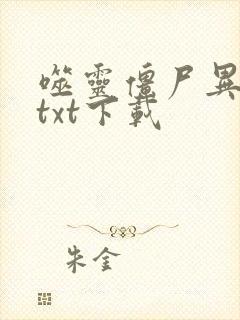 噬靈僵尸異
txt下載
朱金